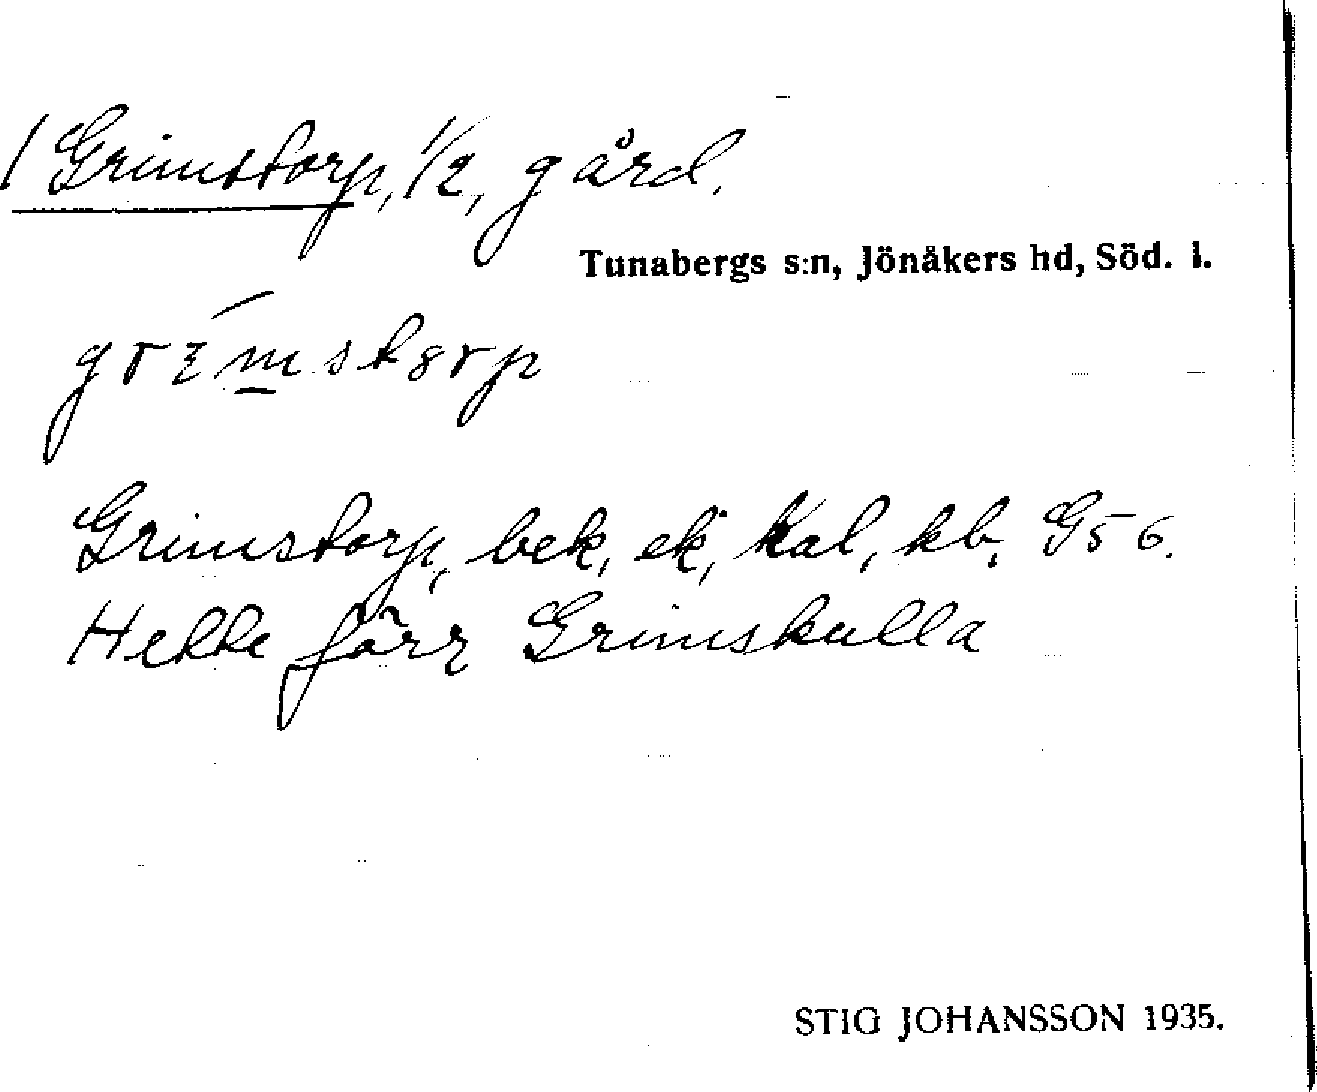 / Grimstorp, 1/2, gård.
Tunabergs s:n, Jönåkers hd, Söd. l.
Grimstorp, bek, ek, Kal, kb, G56.
Hette förr Grimskulla
STIG JOHANSSON 1935.